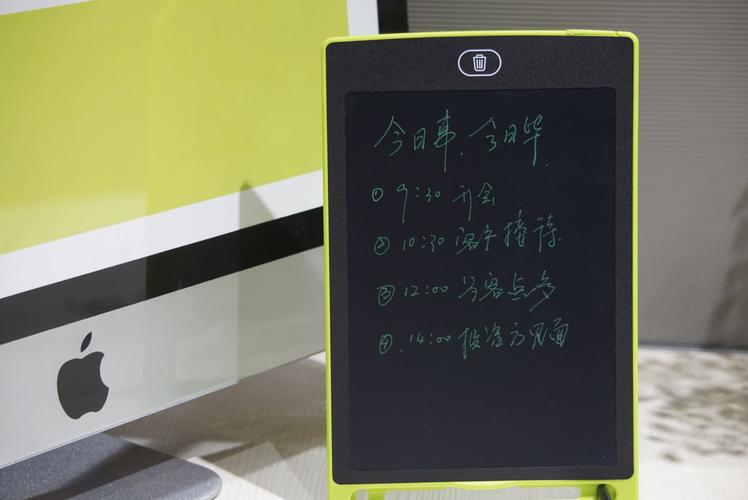 今日事、今日毕.
① 9:30 开会
② 10:30 客户接待
③ 12:00 分客点多
④. 14:00 投资方见面